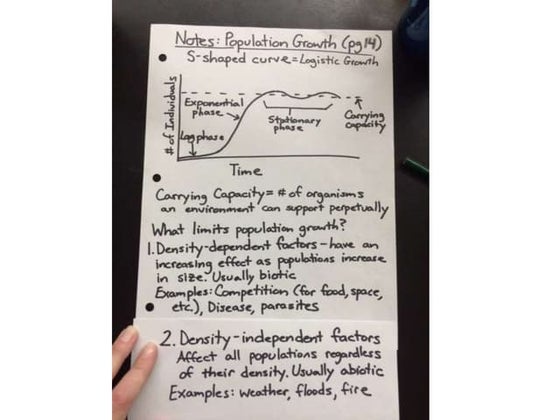 Notes: Population Growth (pg 14)
S-shaped curve = Logistic Growth
# of Individuals
Exponential
phase
Lag phase
Stationary
phase
Carrying
capacity
Time
Carrying Capacity = # of organisms
an environment can support perpetually
What limits population growth?
1. Density-dependent factors - have an
increasing effect as populations increase
in size. Usually biotic
Examples: Competition (for food, space,
etc.), Disease, parasites
2. Density-independent factors
Affect all populations regardless
of their density. Usually abiotic
Examples: weather, floods, fire